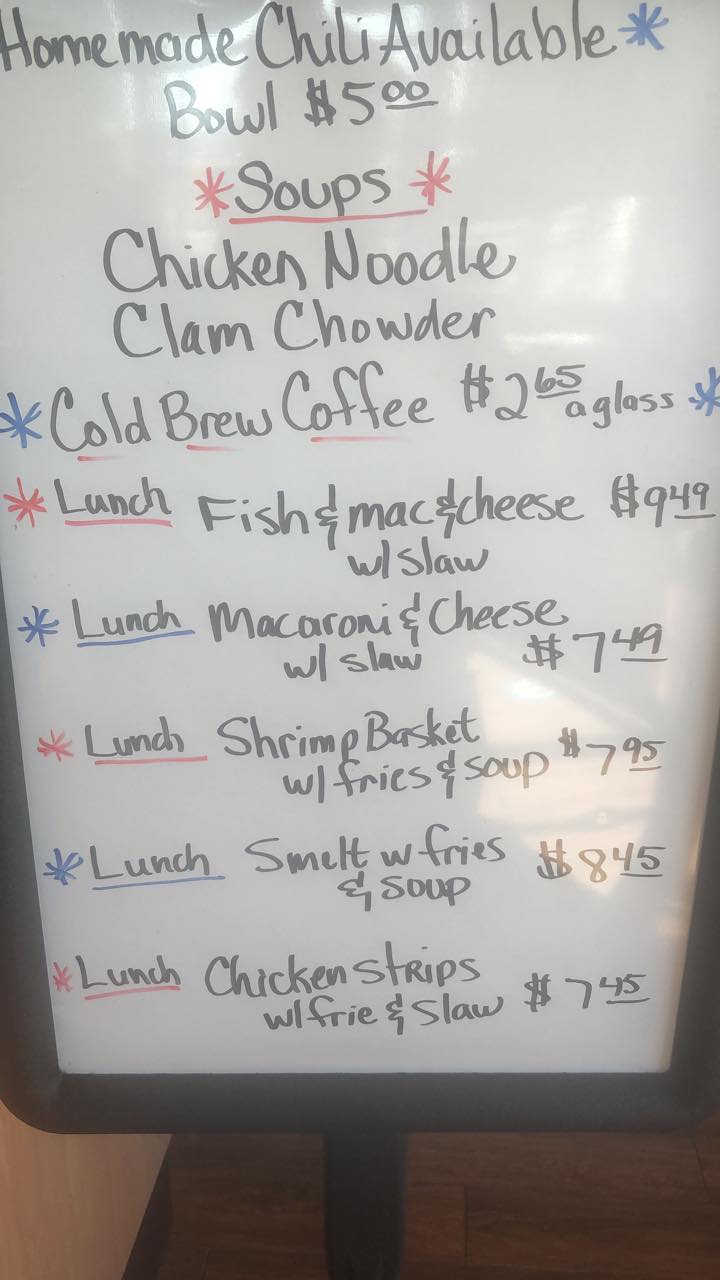 Homemade Chili Available *
Bowl $5.00
* Soups *
Chicken Noodle
Clam Chowder
* Cold Brew Coffee $2.65 a glass *
* Lunch Fish & mac & cheese $9.49
w/ slaw
* Lunch Macaroni & Cheese
w/ slaw $7.49
* Lunch Shrimp Basket
w/ fries & soup $7.95
* Lunch Smelt w fries $8.45
& soup
* Lunch Chicken Strips
w/ frie & Slaw $7.45